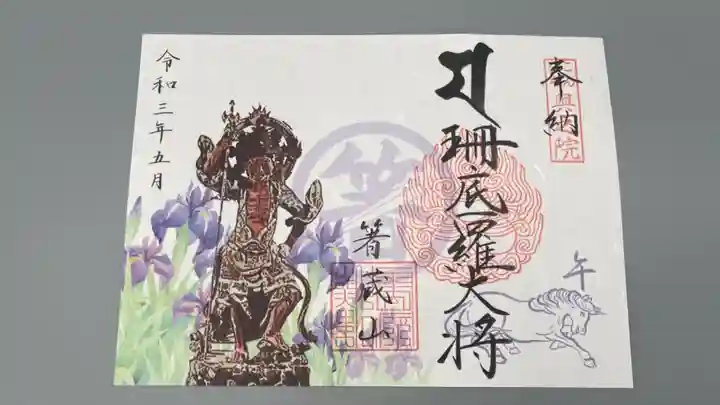 奉納
午
珊底羅大将
箸蔵山
令和三年五月